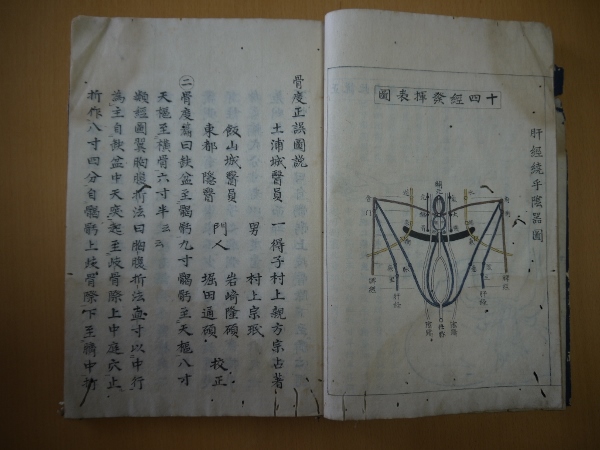 圖表揮發經四十
肝經繞乎陰器圖
肝經
肝經
骨度正誤圖説
土浦城醫員一得子村上親方宗占著
男 村上宗珉
飯山城醫員 岩崎隆碩
門人 校正
東都隱醫 堀田通碩
㊁骨度篇曰缺盆至𩩲骬九寸𩩲骬至天樞八寸
天樞至横骨六寸半云云
類經圖翼胸腹折法曰胸腹折法直寸以中行
為主自缺盆中天突起至歧骨際上中庭穴止
折作八寸四分自𩩲骬上歧骨際下至臍中折